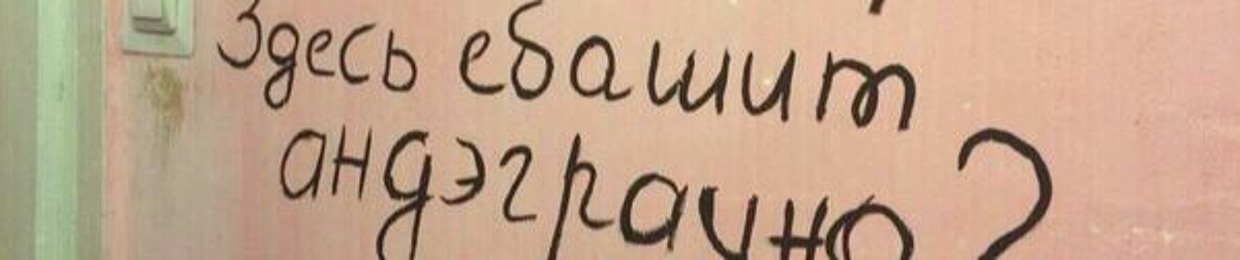 Здесь ебашит
андэграунд?